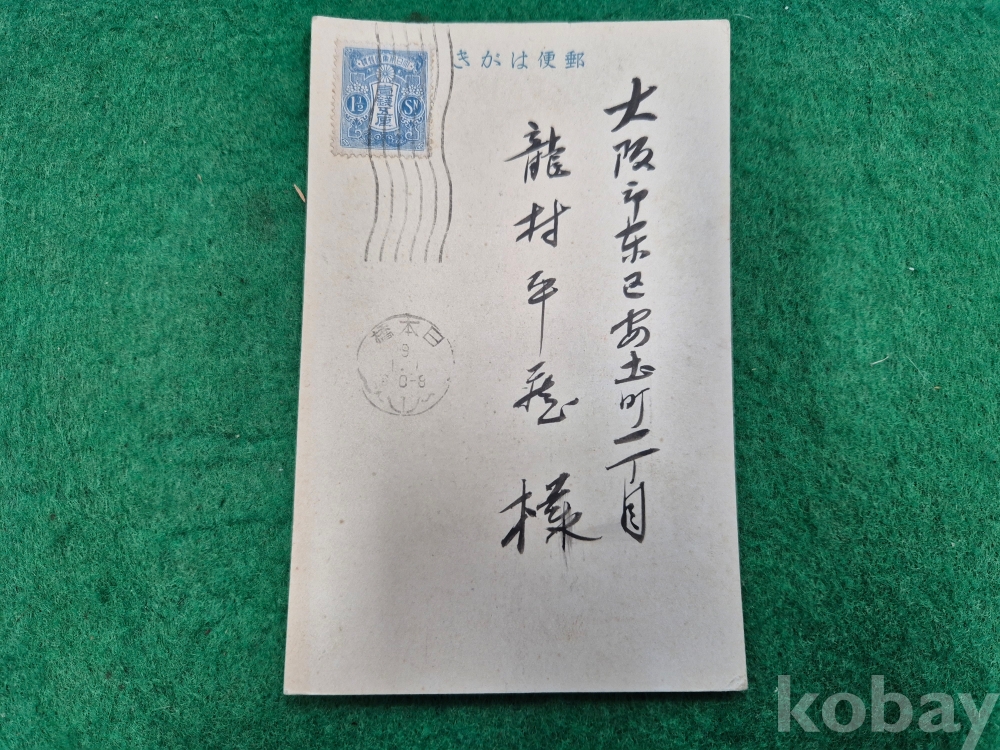 郵便はがき
大阪市東区安土町二丁目
龍村平蔵
様
壹錢五厘
1½ Sn
日本橋
9
1.1
0-8
kobay